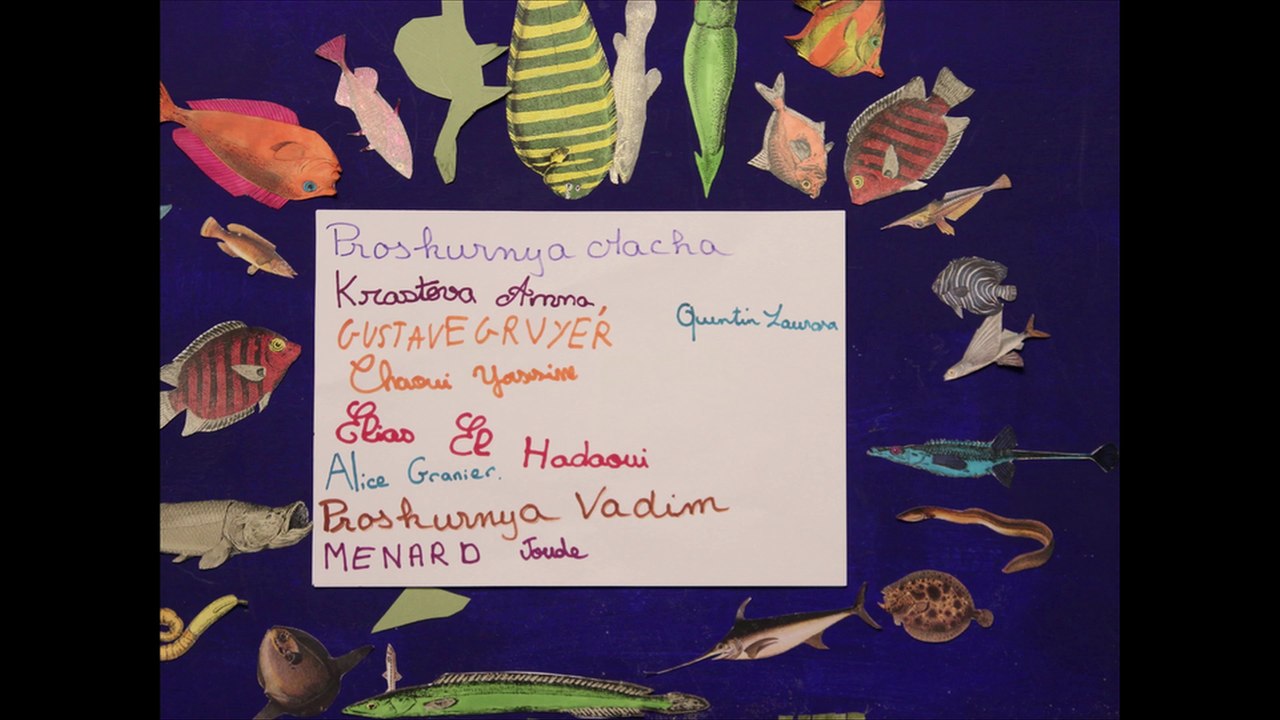 Proskurnya Macha
Krastova Anna
GUSTAVE GRUYER
Quentin Laurora
Chaoui Yassine
Elias El Hadaoui
Alice Granier.
Proskurnya Vadim
MENARD Joude